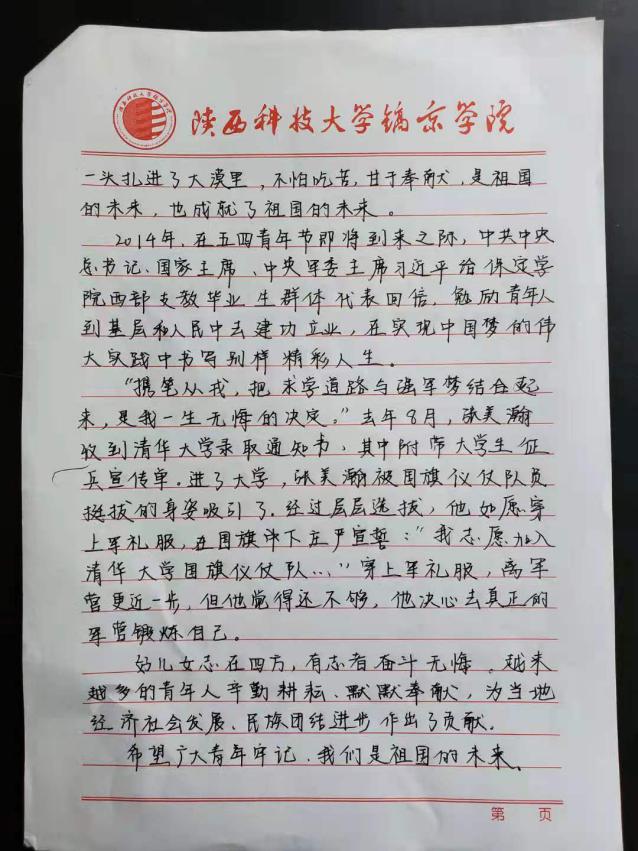 陕西科技大学镐京学院
一头扎进了大漠里，不怕吃苦，甘于奉献，是祖国
的未来，也成就了祖国的未来。
2014年，在五四青年节即将到来之际，中共中央
总书记、国家主席、中央军委主席习近平给保定学
院西部支教毕业生群体代表回信，勉励青年人
到基层和人民中去建功立业，在实现中国梦的伟
大实践中书写别样精彩人生。
“携笔从戎，把求学道路与强军梦结合起
来，是我一生无悔的决定。”去年8月，张美瀚
收到清华大学录取通知书，其中附带大学生征
兵宣传单。进了大学，张美瀚被国旗仪仗队员
挺拔的身姿吸引了。经过层层选拔，他如愿穿
上军礼服，在国旗下庄严宣誓：“我志愿加入
清华大学国旗仪仗队……”穿上军礼服，离军
营更近一步，但他觉得还不够，他决心去真正的
军营锻炼自己。
好儿女志在四方，有志者奋斗无悔。越来
越多的青年人辛勤耕耘、默默奉献，为当地
经济社会发展、民族团结进步作出了贡献。
希望广大青年牢记，我们是祖国的未来、
第 页